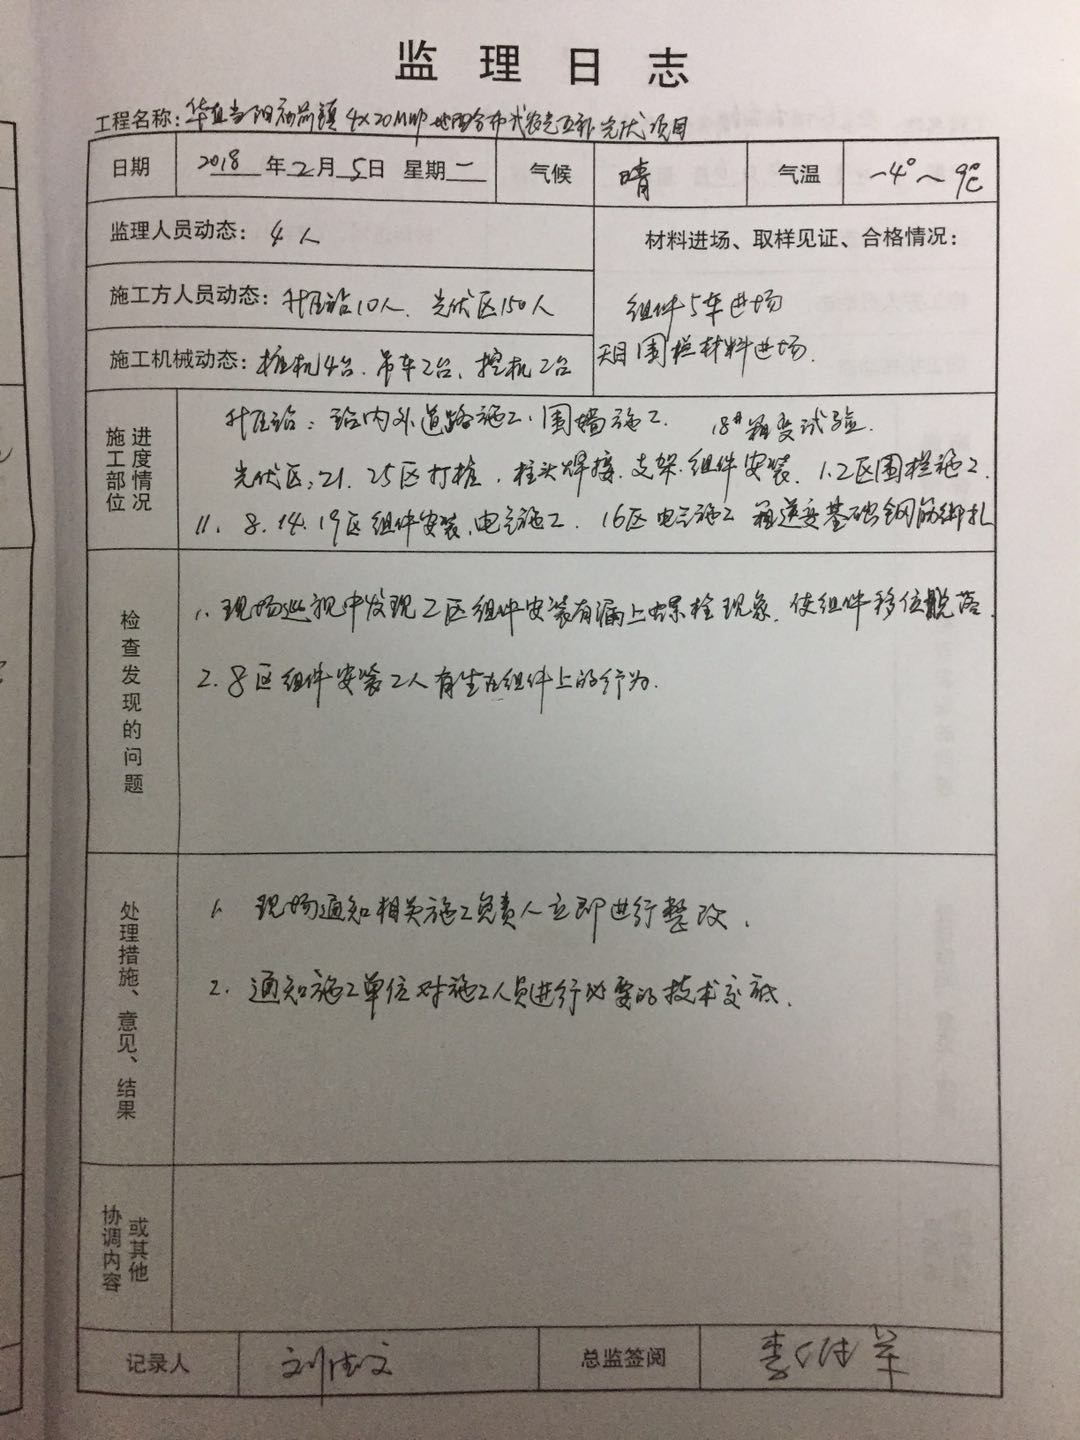 监理日志
工程名称：华直当阳 镇 4×20MWp地面分布式农光互补光伏项目
日期 2018年2月5日 星期一 气候 晴 气温 -4°～9℃
监理人员动态：4人
材料进场、取样见证、合格情况：
施工方人员动态：升压站10人、光伏区150人
组件5车进场
施工机械动态：桩机4台、吊车2台、挖机2台
围栏材料进场.
施工部位进度情况
升压站：站内外道路施工、围墙施工. 18#箱变试验.
光伏区：21、25区打桩、桩头焊接、支架、组件安装、1.2区围栏施工
11、8、14、19区组件安装、电气施工、16区电气施工 箱逆变基础钢筋绑扎
检查发现的问题
1、现场巡视中发现2区组件安装有漏上螺栓现象、使组件移位脱落.
2、8区组件安装工人有坐在组件上的行为.
处理措施、意见、结果
1、现场通知相关施工负责人立即进行整改.
2、通知施工单位对施工人员进行必要的技术交底.
协调内容或其他
记录人 刘 文 总监签阅 李 军